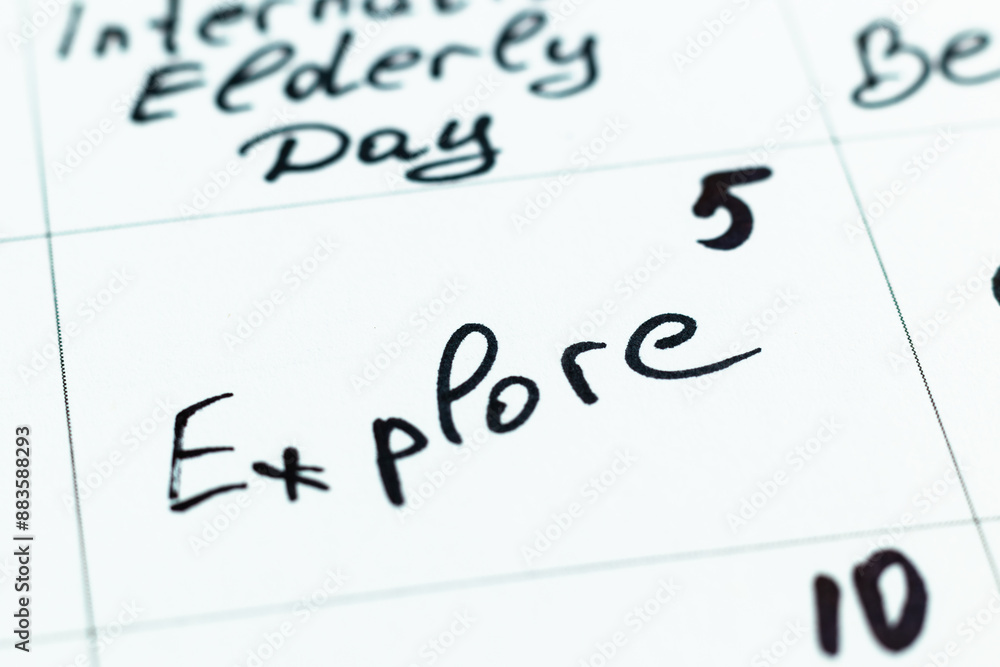 International
Elderly
Day
Be
5
Explore
10
Adobe Stock | #883588293